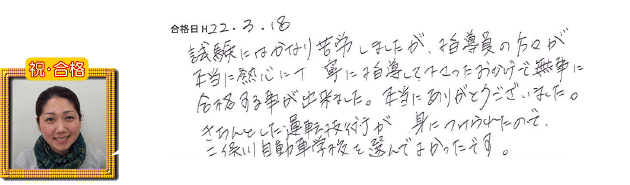 合格日 H22.3.18
試験にはかなり苦労しましたが、指導員の方々が
本当に熱心に丁寧に指導して下さったおかげで無事に
合格する事が出来ました。本当にありがとうございました。
きちんとした運転技術が身につけられたので、
二俣川自動車学校を選んでよかったです。
祝・合格